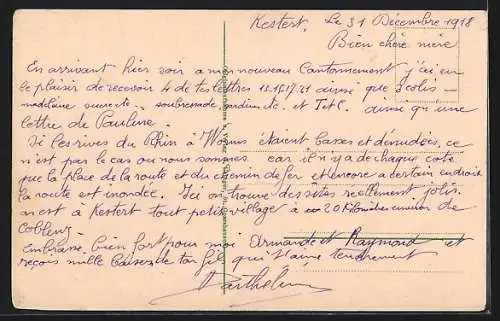 Kestert, Le 31 Décembre 1918
Bien chère mère
En arrivant hier soir a mon nouveau Cantonnement j'ai eu
le plaisir de recevoir 4 de tes lettres 15.17.21 ainsi que 3 colis
madelaine sucre et et ainsi qu'une
lettre de Pauline.
Si les rives du Rhin à Worms étaient basses et dénudées, ce
n'est pas le cas ou nous sommes car il n'y a de chaque coté
que la place de la route et du chemin de fer et encore a certain endroit
la route est inondée. Ici on trouve des sites réellement jolis.
on est à Kestert tout petit village à 20 Kilom environ de
Coblenz
embrasse bien fort pour moi Armande et Raymond et
reçois mille baisers de ton fils qui t'aime tendrement
Barthélemy